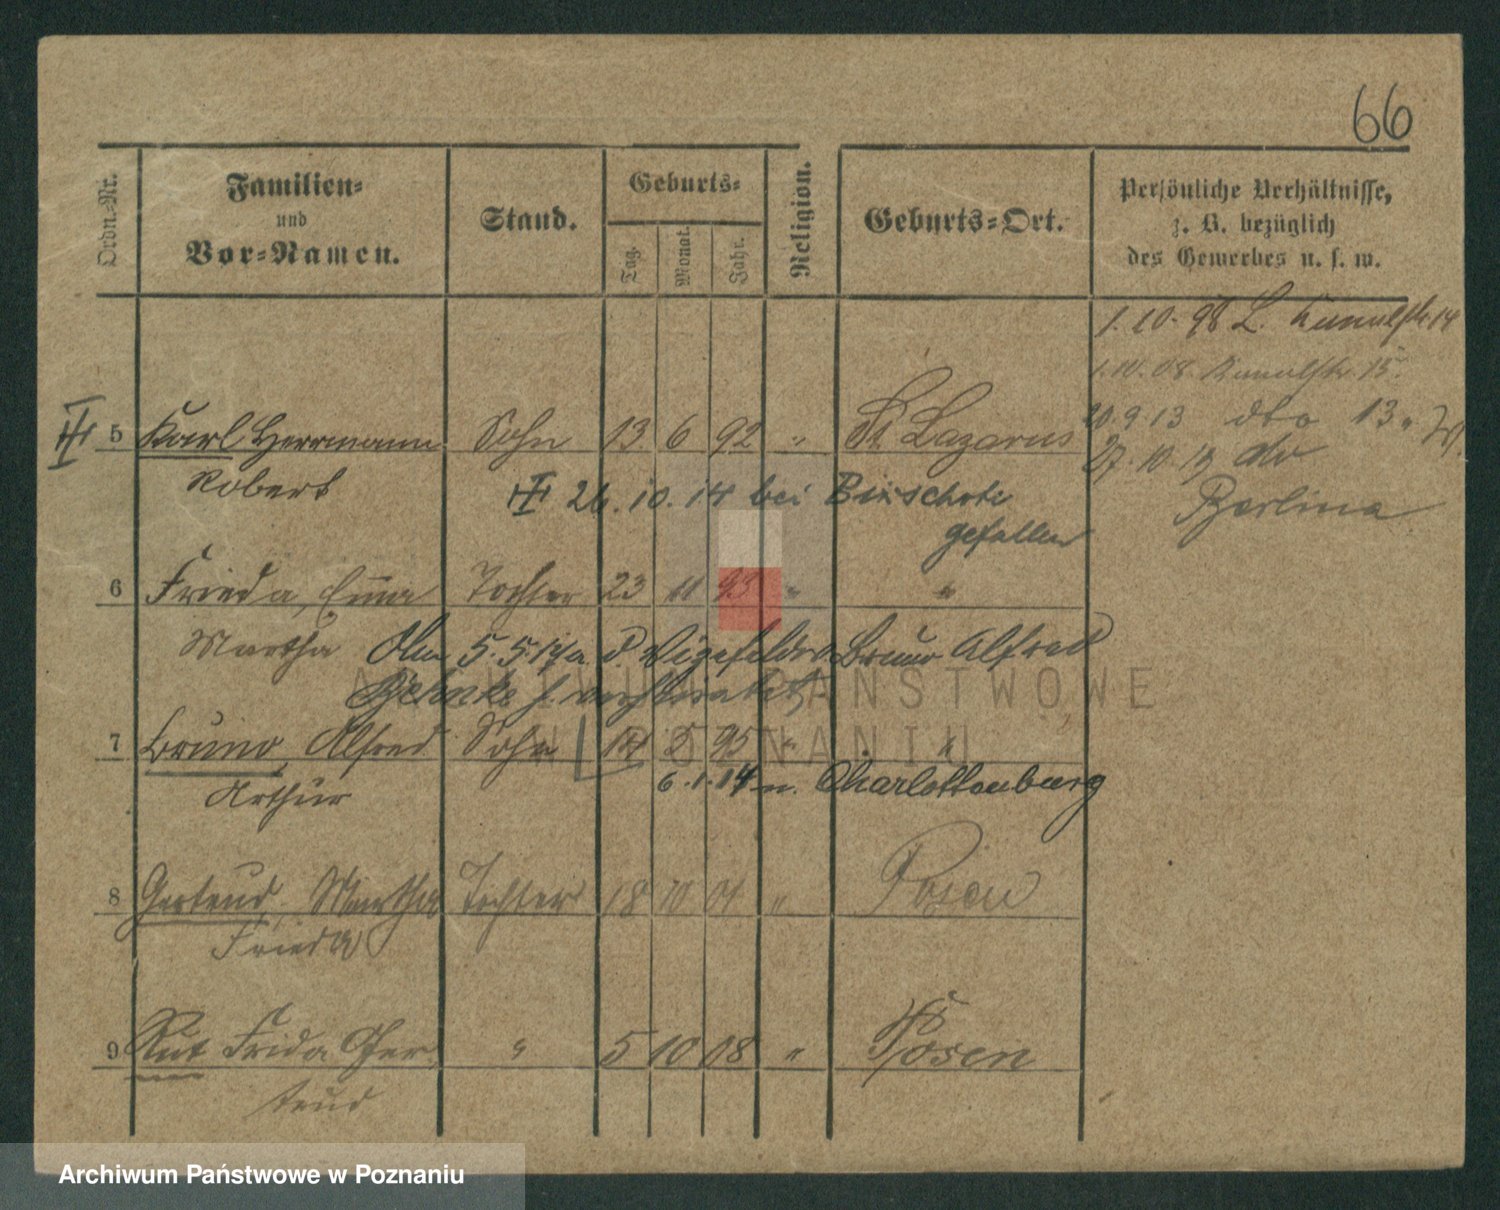 66
Ordn.-Nr.
Familien-
und
Vor-Namen.
Stand.
Geburts-
Tag.
Monat.
Jahr.
Religion.
Geburts-Ort.
Persönliche Verhältnisse,
z. B. bezüglich
des Gewerbes u. s. w.
1.10.98 L.
1.10.08. 15.
5 Karl Herrmann Sohn 13 6 92 " St Lazarus
20.9.13 dto 13
Robert
27.10.13
26.10.14 bei Bixschote
gefallen
Berlina
6 Frieda, Emma Tochter 23 11 93 " "
Martha
5.5.17 d. Vizefeldw. Bruno Alfred
ARCHIWUM PAŃSTWOWE
W POZNANIU
7 Bruno, Alfred Sohn 14 95 " "
Arthur
6.1.14 n. Charlottenburg
8 Gertrud, Martha Tochter 18 10 01 " Posen
Frieda
9 Rut Frida Ger " 5 10 08 " Posen
trud
Archiwum Państwowe w Poznaniu